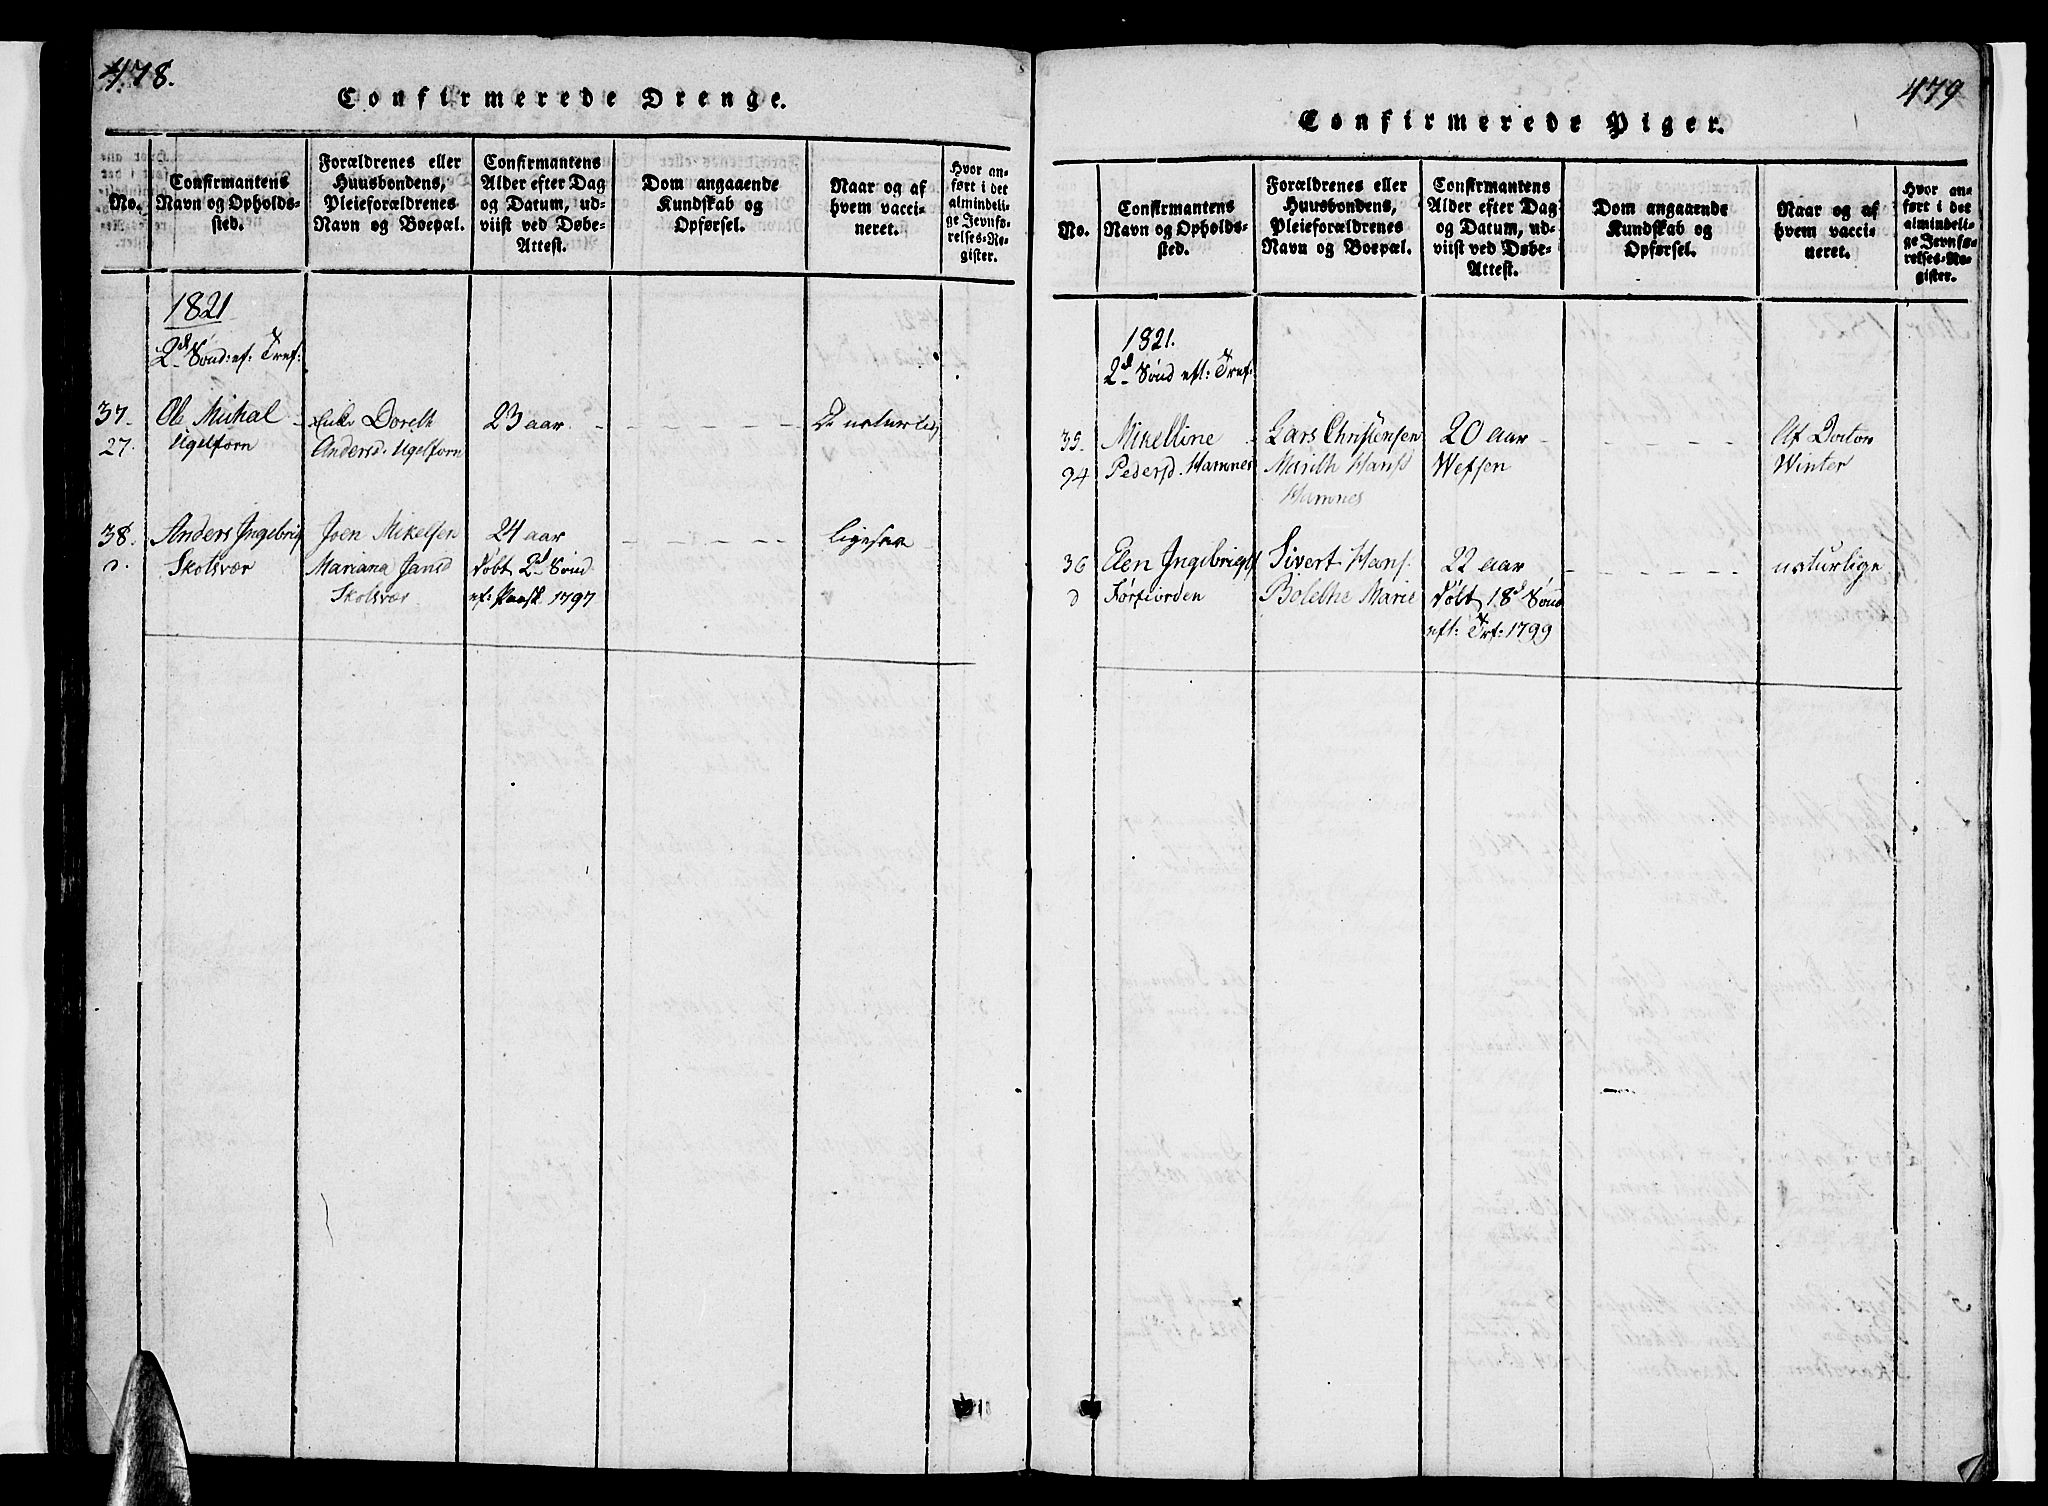 478.
Confirmerede Drenge.
No.
Confirmantens
Navn og Opholds-
sted.
Forældrenes eller
Huusbondens,
Pleieforældrenes
Navn og Boepæl.
Confirmantens
Alder efter Dag
og Datum, ud-
viist ved Døbe-
Attest.
Dom angaaende
Kundskab og
Opførsel.
Naar og af
hvem vacci-
neret.
Hvor an-
ført i det
almindeli-
ge Jevnfø-
relses-Re-
gister.
1821
2d Sønd: ef: Tref:
37.
27.
Ole Michal
Ugelforn
Doreth
Andersd. Ugelforn
23 aar
naturlig
38.
d.
Anders Ingebrigs
Skolsvær
Joen Mikelsen
Mariana Jansd
Skolsvær
24 aar
døbt 2d Sønd
ef: Paask 1797
ligesaa
479
Confirmerede Piger.
No.
Confirmantens
Navn og Opholds-
sted.
Forældrenes eller
Huusbondens,
Pleieforældrenes
Navn og Boepæl.
Confirmantens
Alder efter Dag
og Datum, ud-
viist ved Døbe-
Attest.
Dom angaaende
Kundskab og
Opførsel.
Naar og af
hvem vacci-
neret.
Hvor an-
ført i det
almindeli-
ge Jevnfø-
relses-Re-
gister.
1821.
2d Sønd eft: Tref:
35.
94
Mikelline
Pedersd. Hamnes
Lars Christensen
Mareth Hans
Hamnes
20 aar
Wefsen
Af Docton
Winter
36
d
Elen Ingebrigts
Førfiorden
Sivert Hans.
Bolethe Marie
22 aar
døbt 18d Sønd
eft: Trf: 1799
naturlige